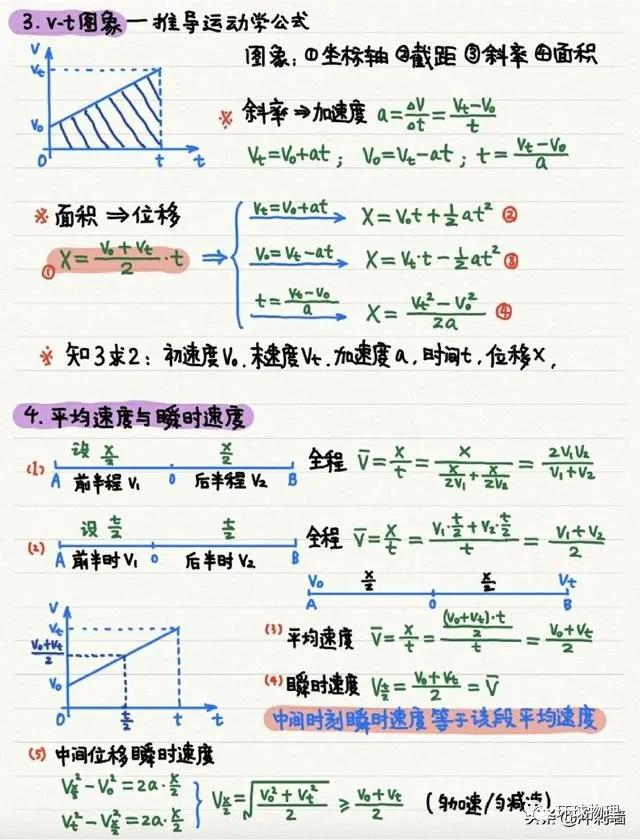 3. v-t图象 — 推导运动学公式
图象: ①坐标轴 ②截距 ③斜率 ④面积
V
Vt
V₀
0
t
t
※ 斜率 ⇒ 加速度 a = ΔV/Δt = (Vt-V₀)/t
Vt=V₀+at; V₀=Vt-at; t=(Vt-V₀)/a
※ 面积 ⇒ 位移
① X = (V₀+Vt)/2 · t ⇒
Vt=V₀+at → X = V₀t + ½at² ②
V₀=Vt-at → X = Vt·t - ½at² ③
t=(Vt-V₀)/a → X = (Vt²-V₀²)/2a ④
※ 知3求2: 初速度V₀. 末速度Vt. 加速度a, 时间t, 位移X,
4. 平均速度与瞬时速度
设 x/2 x/2
(1) A 前半程 V₁ 0 后半程 V₂ B
全程 V̄ = x/t = x/(x/2V₁ + x/2V₂) = 2V₁V₂/(V₁+V₂)
设 t/2 t/2
(2) A 前半时 V₁ 0 后半时 V₂ B
全程 V̄ = x/t = (V₁·t/2 + V₂·t/2)/t = (V₁+V₂)/2
V₀ x/2 x/2 Vt
A 0 B
V
Vt
(V₀+Vt)/2
V₀
0
t/2
t
t
(3) 平均速度 V̄ = x/t = ((V₀+Vt)·t/2)/t = (V₀+Vt)/2
(4) 瞬时速度 V t/2 = (V₀+Vt)/2 = V̄
中间时刻瞬时速度等于该段平均速度
(5) 中间位移瞬时速度
V x/2² - V₀² = 2a·x/2
Vt² - V x/2² = 2a·x/2
V x/2 = √((V₀²+Vt²)/2) ≥ (V₀+Vt)/2 (匀加速/匀减速)
环球物理